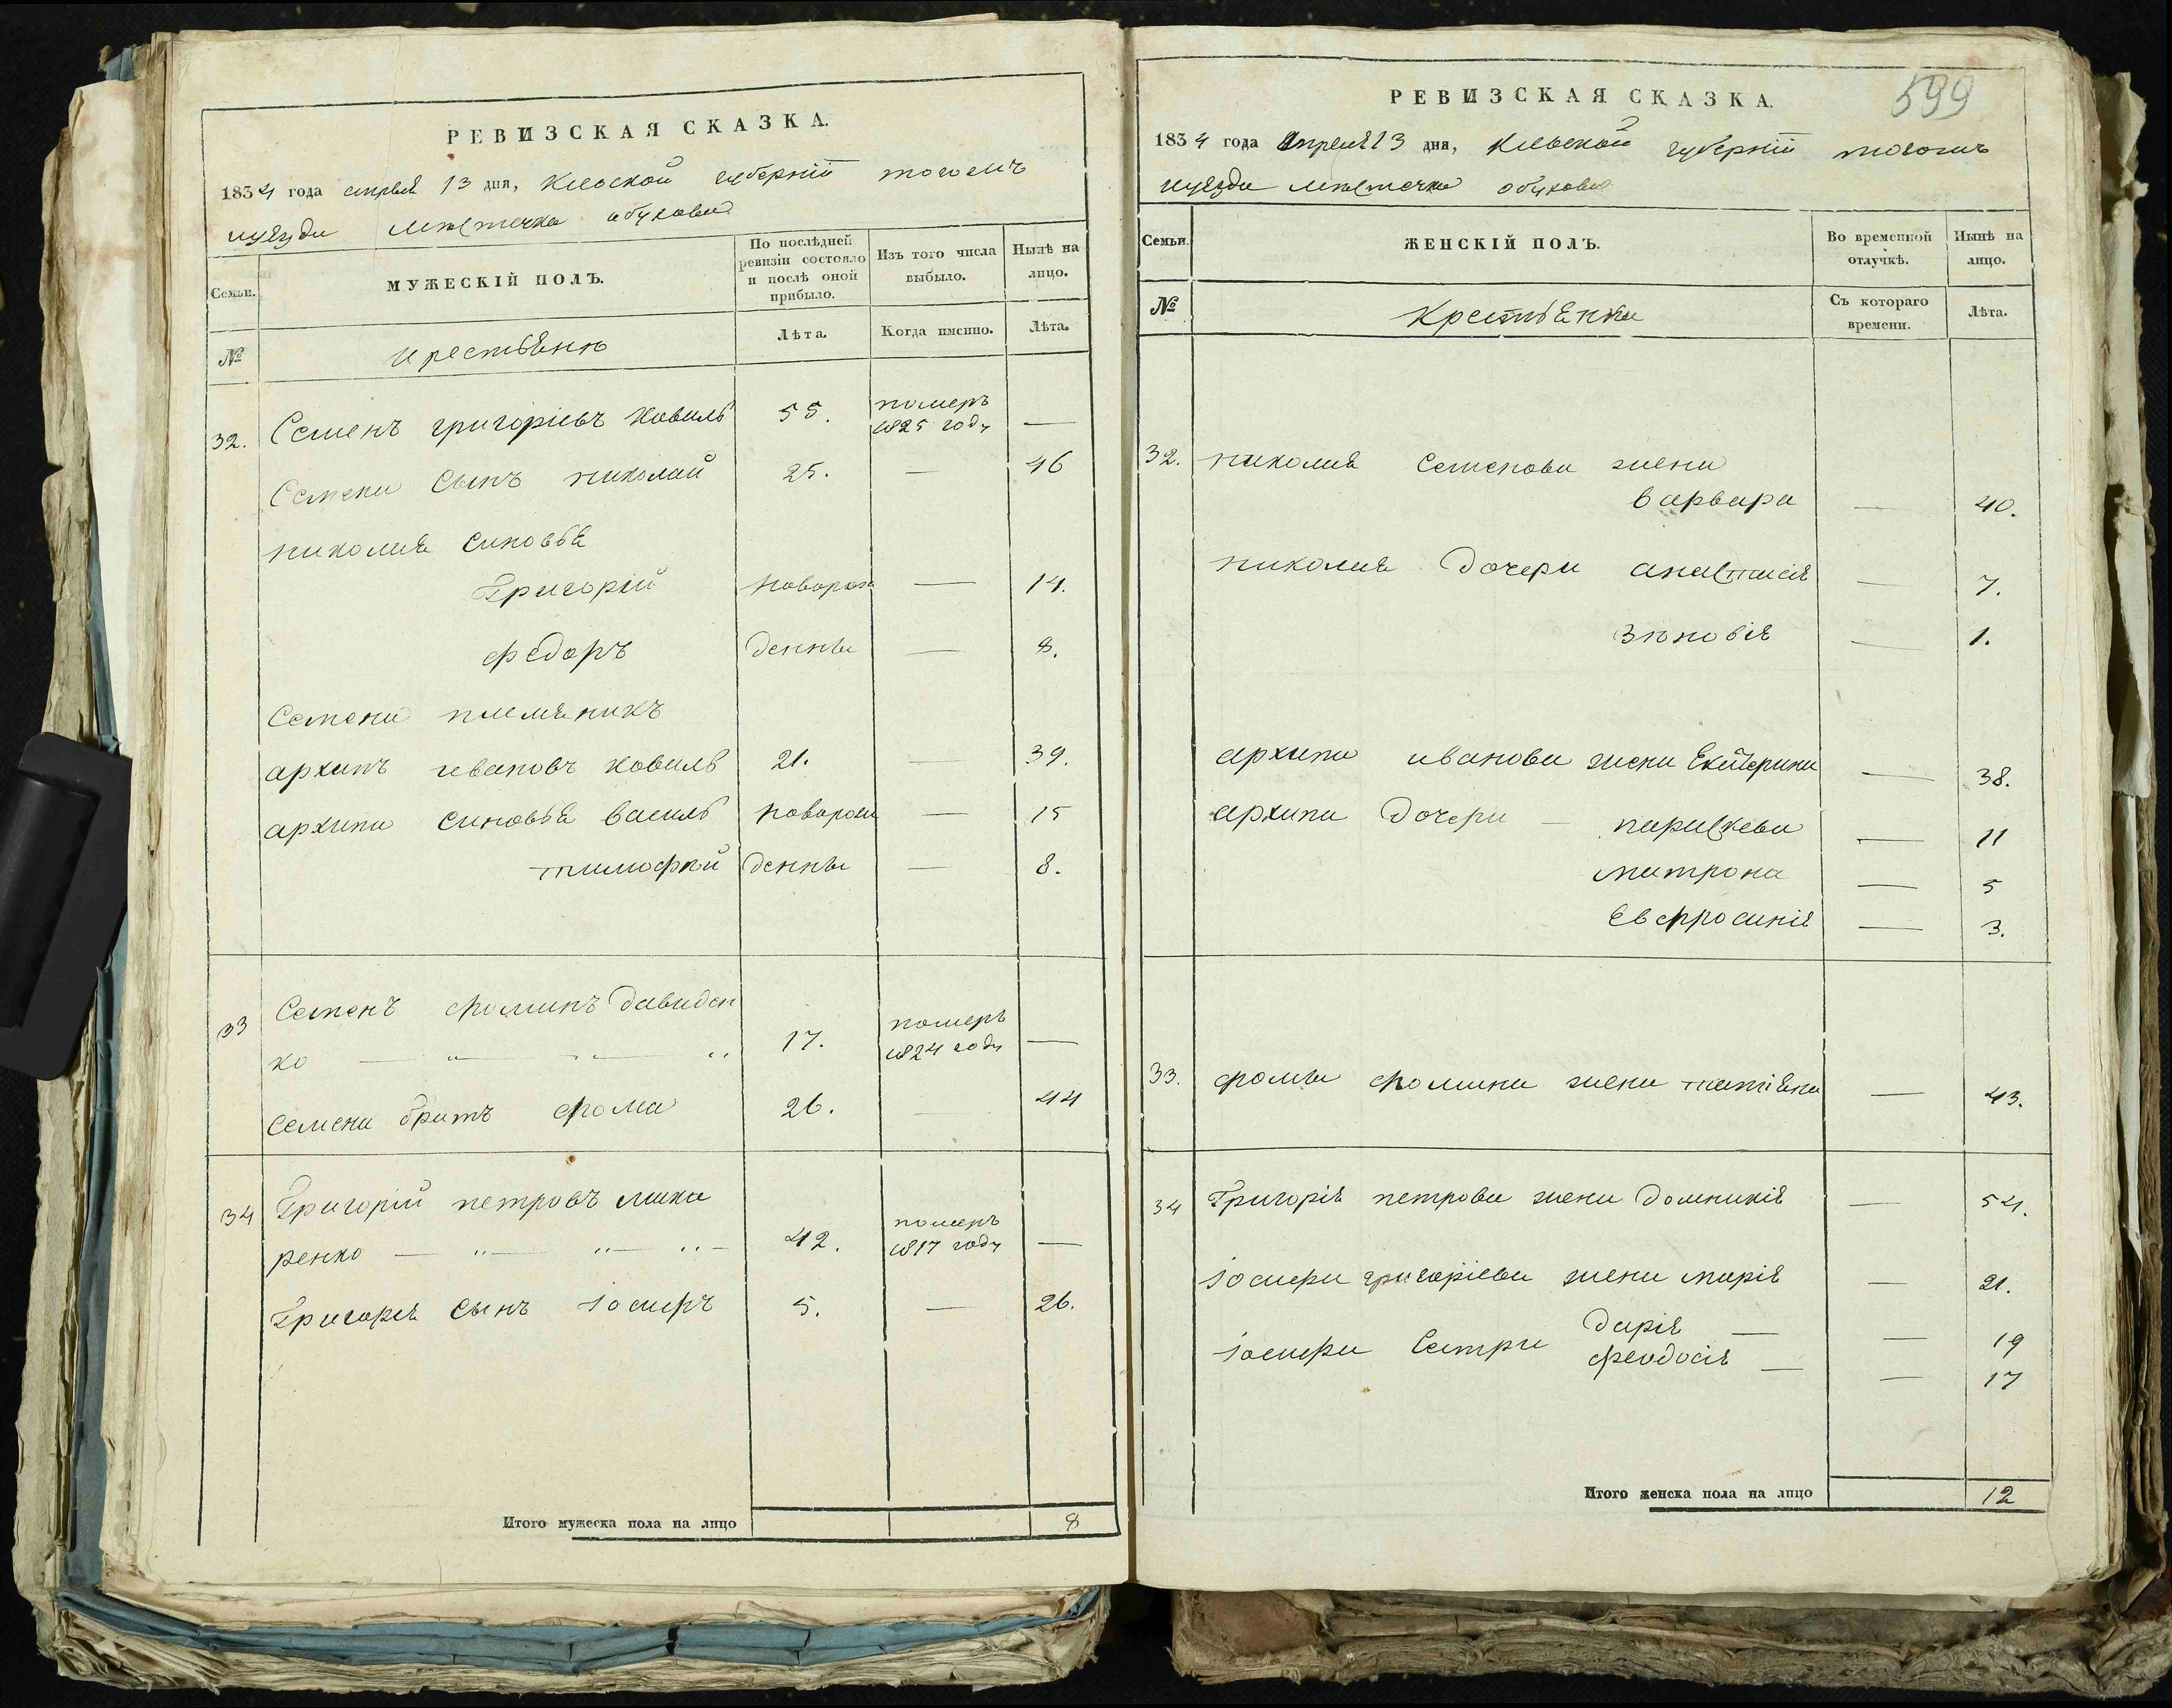 РЕВИЗСКАЯ СКАЗКА.
1834 года апреля 13 дня, Киевской губерніи тогожъ
уезда местечка обухова
Семьи.
МУЖЕСКІЙ ПОЛЪ.
По послѣдней ревизіи состояло и послѣ оной прибыло.
Изъ того числа выбыло.
Нынѣ на лицо.
№
крестьяне
Лѣта.
Когда именно.
Лѣта.
32. Семенъ григоріевъ Ковиль 55. померъ 1825 году —
Семена Сынъ николай 25. — 46
николая синовья
Григорій новорож — 14.
федоръ денны — 8.
Семена племяникъ
архипъ ивановъ ковиль 21. — 39.
архипа синовья василь новорож — 15
тимофей денны — 8.
33 Семенъ фоминъ давиден
ко — 17. померъ 1824 году —
Семена братъ фома 26. — 44
34 Григорій петровъ мака
ренко — 42. померъ 1817 году —
Григорія Сынъ іосифъ 5. — 26.
Итого мужеска пола на лицо 8
599
РЕВИЗСКАЯ СКАЗКА.
1834 года апреля 13 дня, Киевской губерніи тогожъ
уезда местечка обухова
Семьи.
ЖЕНСКІЙ ПОЛЪ.
Во временной отлучкѣ.
Нынѣ на лицо.
№
Крестьянки
Съ котораго времени.
Лѣта.
32. николая Семенова жена
варвара — 40.
николая Дочери анастасія — 7.
Зѣновія — 1.
архипа иванова жена Екатерина — 38.
архипа Дочери — параскева — 11
матрона — 5
Евфросинія — 3.
33. фомы фомина жена татіяна — 43.
34 Григорія петрова жена Домникія — 54.
іосифа григоріева жена марія — 21.
дарія — — 19
іосифа Сестри
феодосія — — 17
Итого женска пола на лицо 12